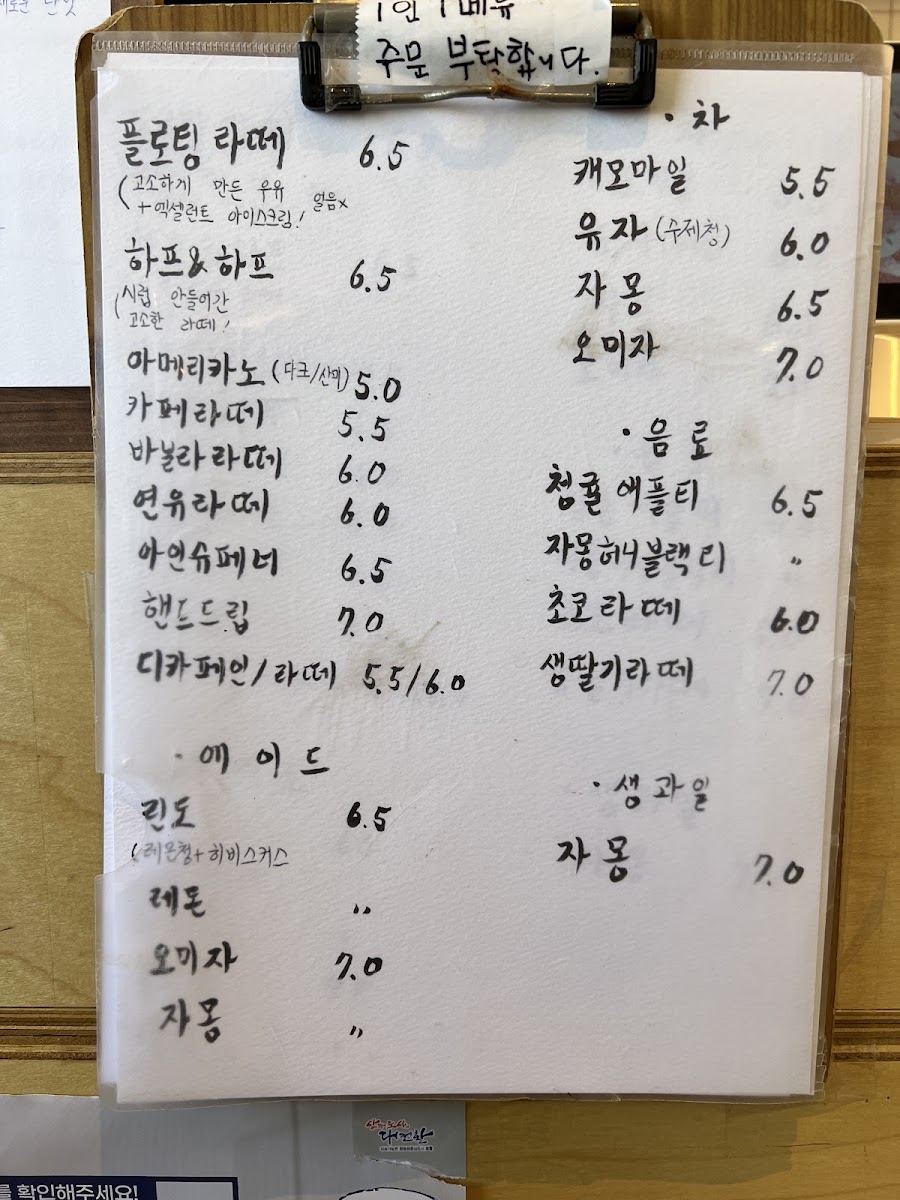 1인 1메뉴
주문 부탁합니다.
플로팅 라떼 6.5
(고소하게 만든 우유
+엑셀런트 아이스크림! 얼음x
하프&하프 6.5
(시럽 안들어간
고소한 라떼!
아메리카노 (다크/산미) 5.0
카페라떼 5.5
바닐라라떼 6.0
연유라떼 6.0
아인슈페너 6.5
핸드드립 7.0
디카페인/라떼 5.5/6.0
· 에이드
린도 6.5
(레몬청+히비스커스
레몬 〃
오미자 7.0
자몽 〃
· 차
캐모마일 5.5
유자 (수제청) 6.0
자몽 6.5
오미자 7.0
· 음료
청귤 애플티 6.5
자몽허니블랙티 〃
초코라떼 6.0
생딸기라떼 7.0
· 생과일
자몽 7.0
를 확인해주세요!